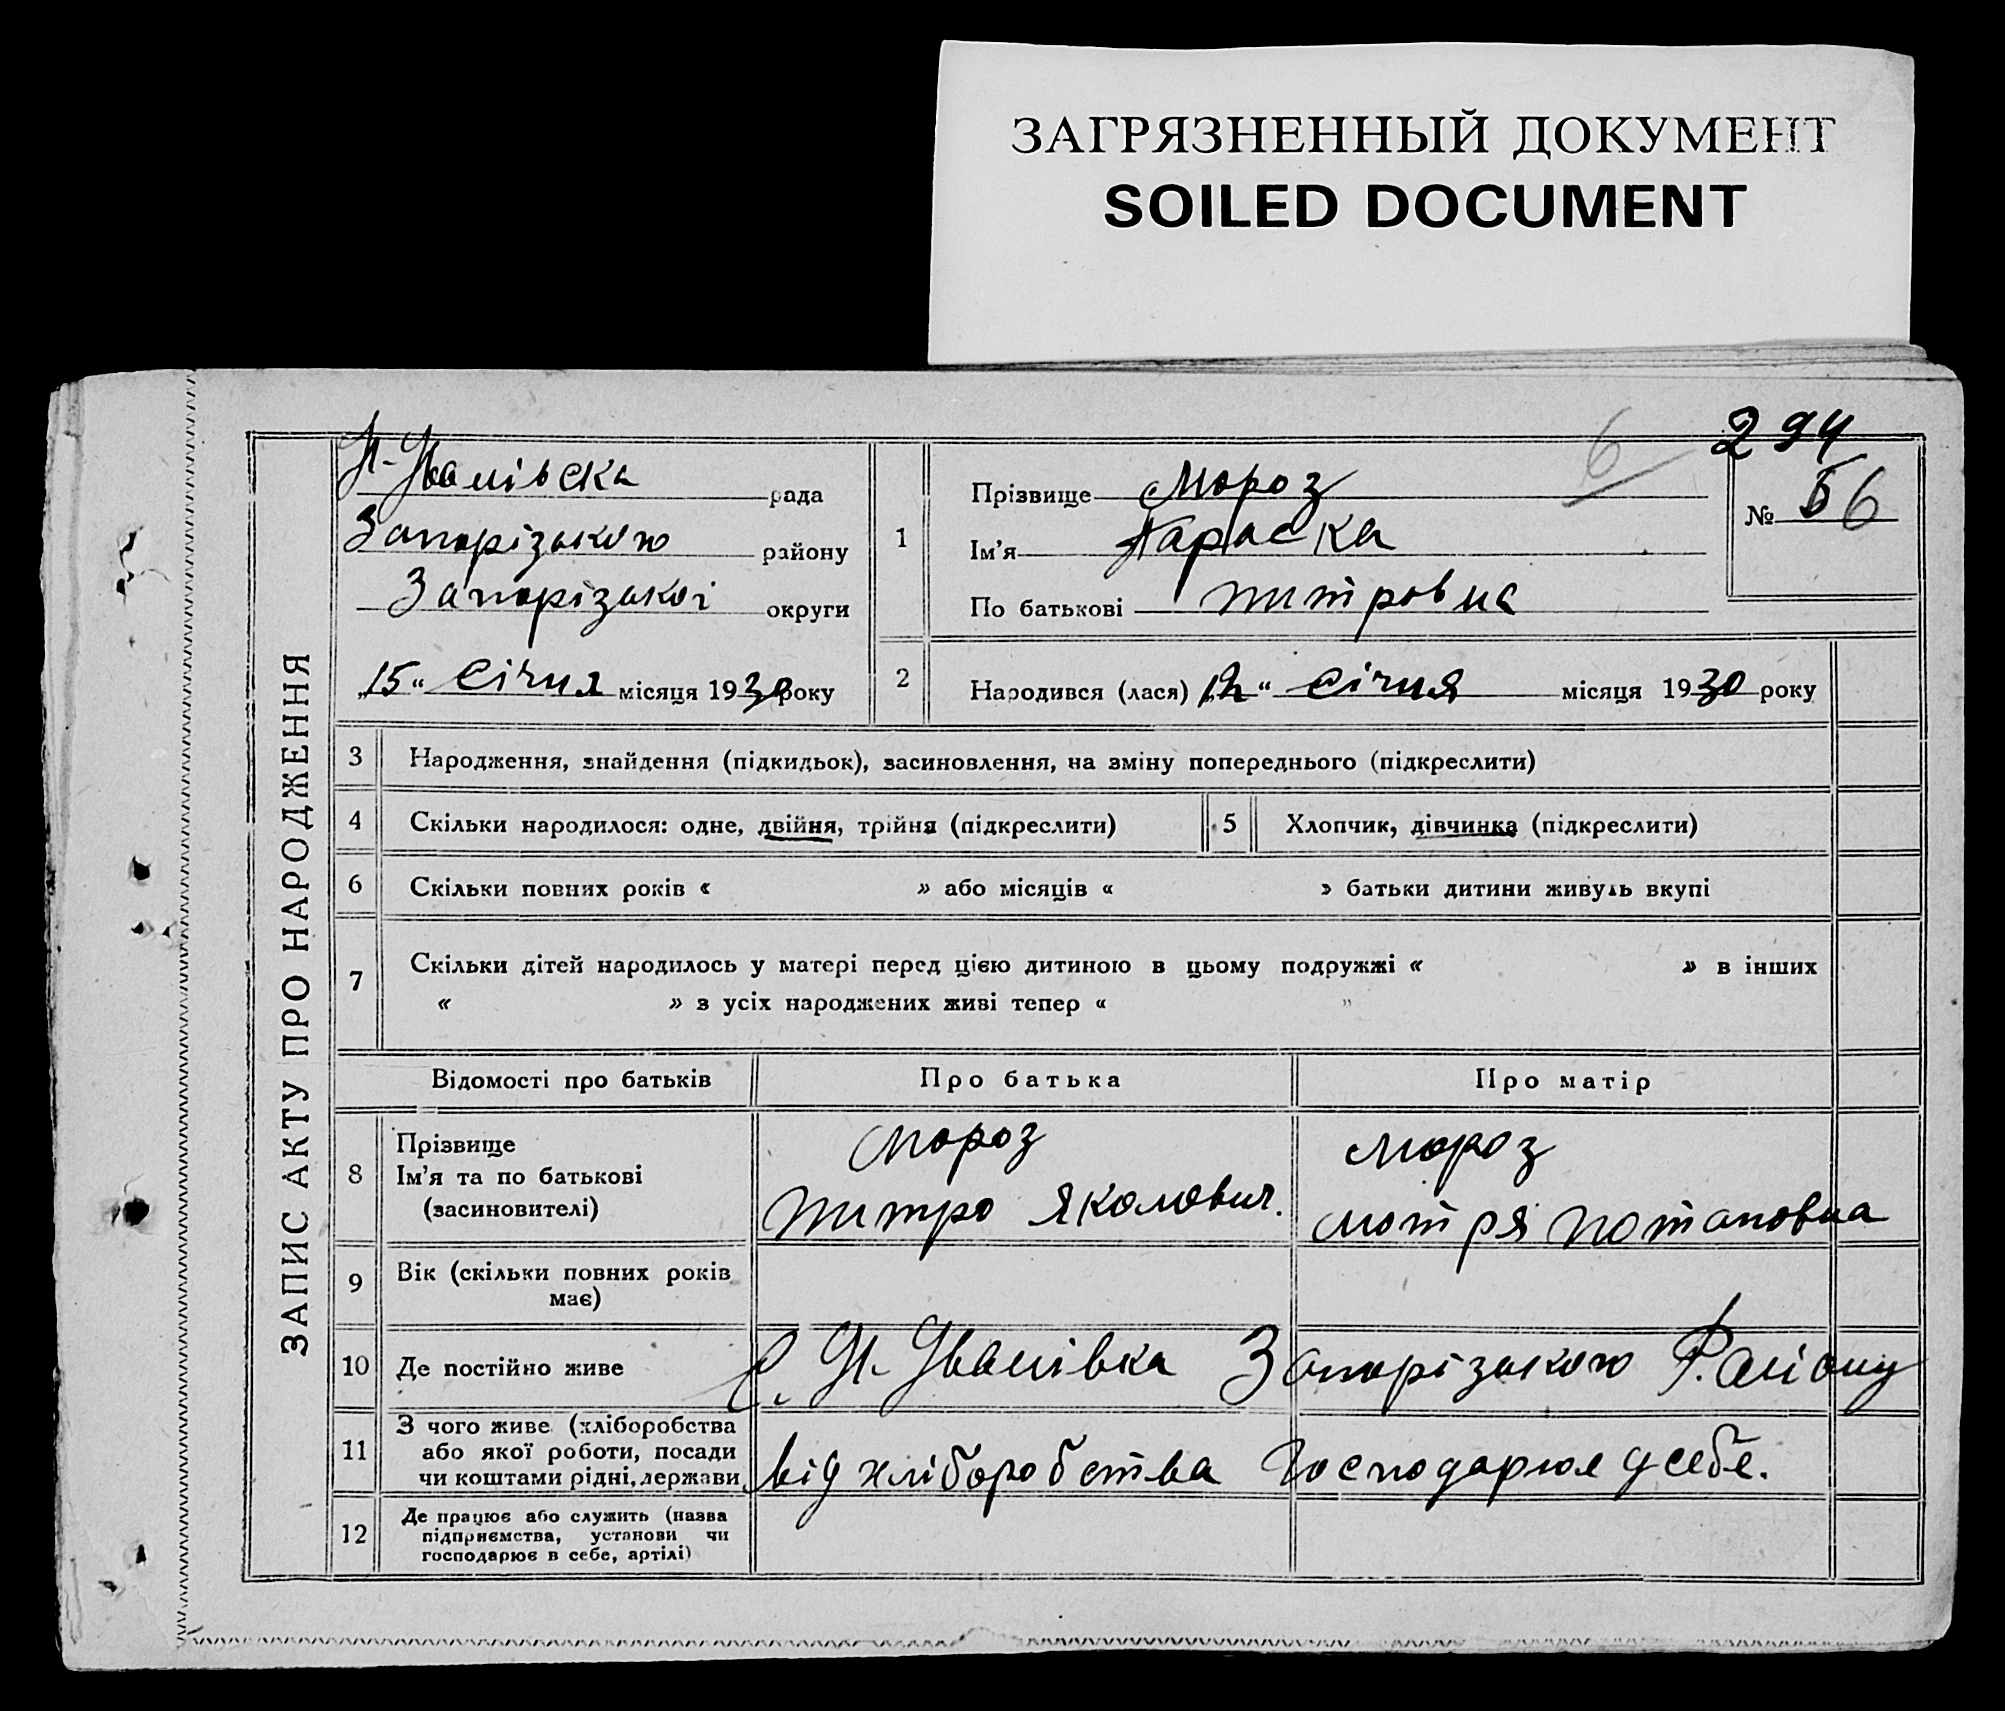 ЗАГРЯЗНЕННЫЙ ДОКУМЕНТ
SOILED DOCUMENT
294
6
№ 6
ЗАПИС АКТУ ПРО НАРОДЖЕННЯ
Н-Іванівска рада
Запорізького району
Запорізької округи
„15“ Січня місяця 1930 року
1
Прізвище Мороз
Ім’я Параска
По батькові Дмитровна
2 Народився (лася) „12“ Січня місяця 1930 року
3 Народження, знайдення (підкидьок), засиновлення, на зміну попереднього (підкреслити)
4 Скільки народилося: одне, двійня, трійня (підкреслити) 5 Хлопчик, дівчинка (підкреслити)
6 Скільки повних років « » або місяців « » батьки дитини живуть вкупі
7 Скільки дітей народилось у матері перед цією дитиною в цьому подружжі « » в інших
« » з усіх народжених живі тепер « ”
Відомості про батьків Про батька Про матір
8 Прізвище Мороз Мороз
Ім’я та по батькові Дмитро Якомович. Мотря Потаповна
(засиновителі)
9 Вік (скільки повних років
має)
10 Де постійно живе С. Н-Іванівка Запорізького Району
11 З чого живе (хліборобства
або якої роботи, посади від хліборобства Господарює у себе.
чи коштами рідні, держави
12 Де працює або служить (назва
підприємства, установи чи
господарює в себе, артілі)